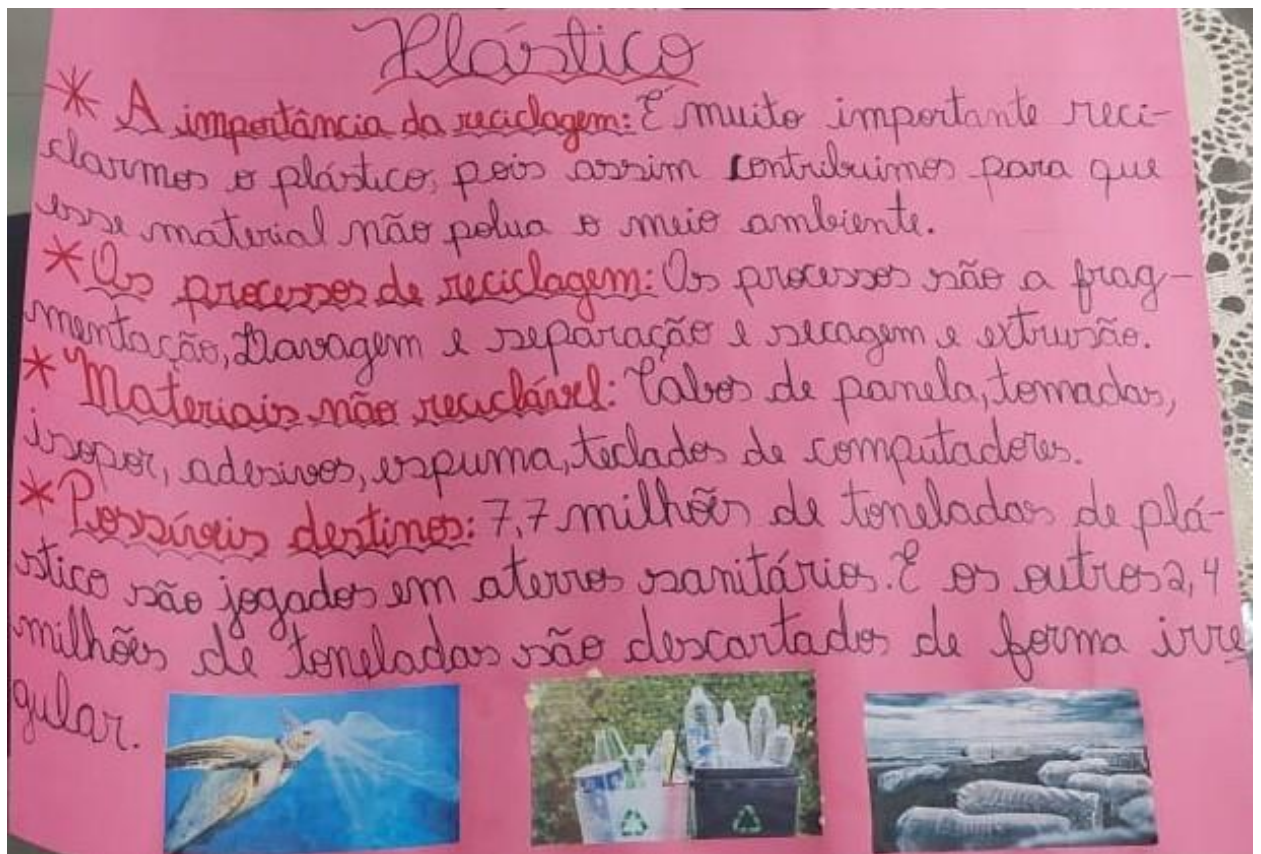 Plástico
* A importância da reciclagem: É muito importante reci-
clarmos o plástico, pois assim contribuimos para que
esse material não polua o meio ambiente.
* Os processos de reciclagem: Os processos são a frag-
mentação, Lavagem e separação e secagem e extrusão.
* Materiais não reciclável: Cabos de panela, tomadas,
isopor, adesivos, espuma, teclados de computadores.
* Possíveis destinos: 7,7 milhões de toneladas de plá-
stico são jogados em aterros sanitários. E os outros 2,4
milhões de toneladas são descartados de forma irre
gular.